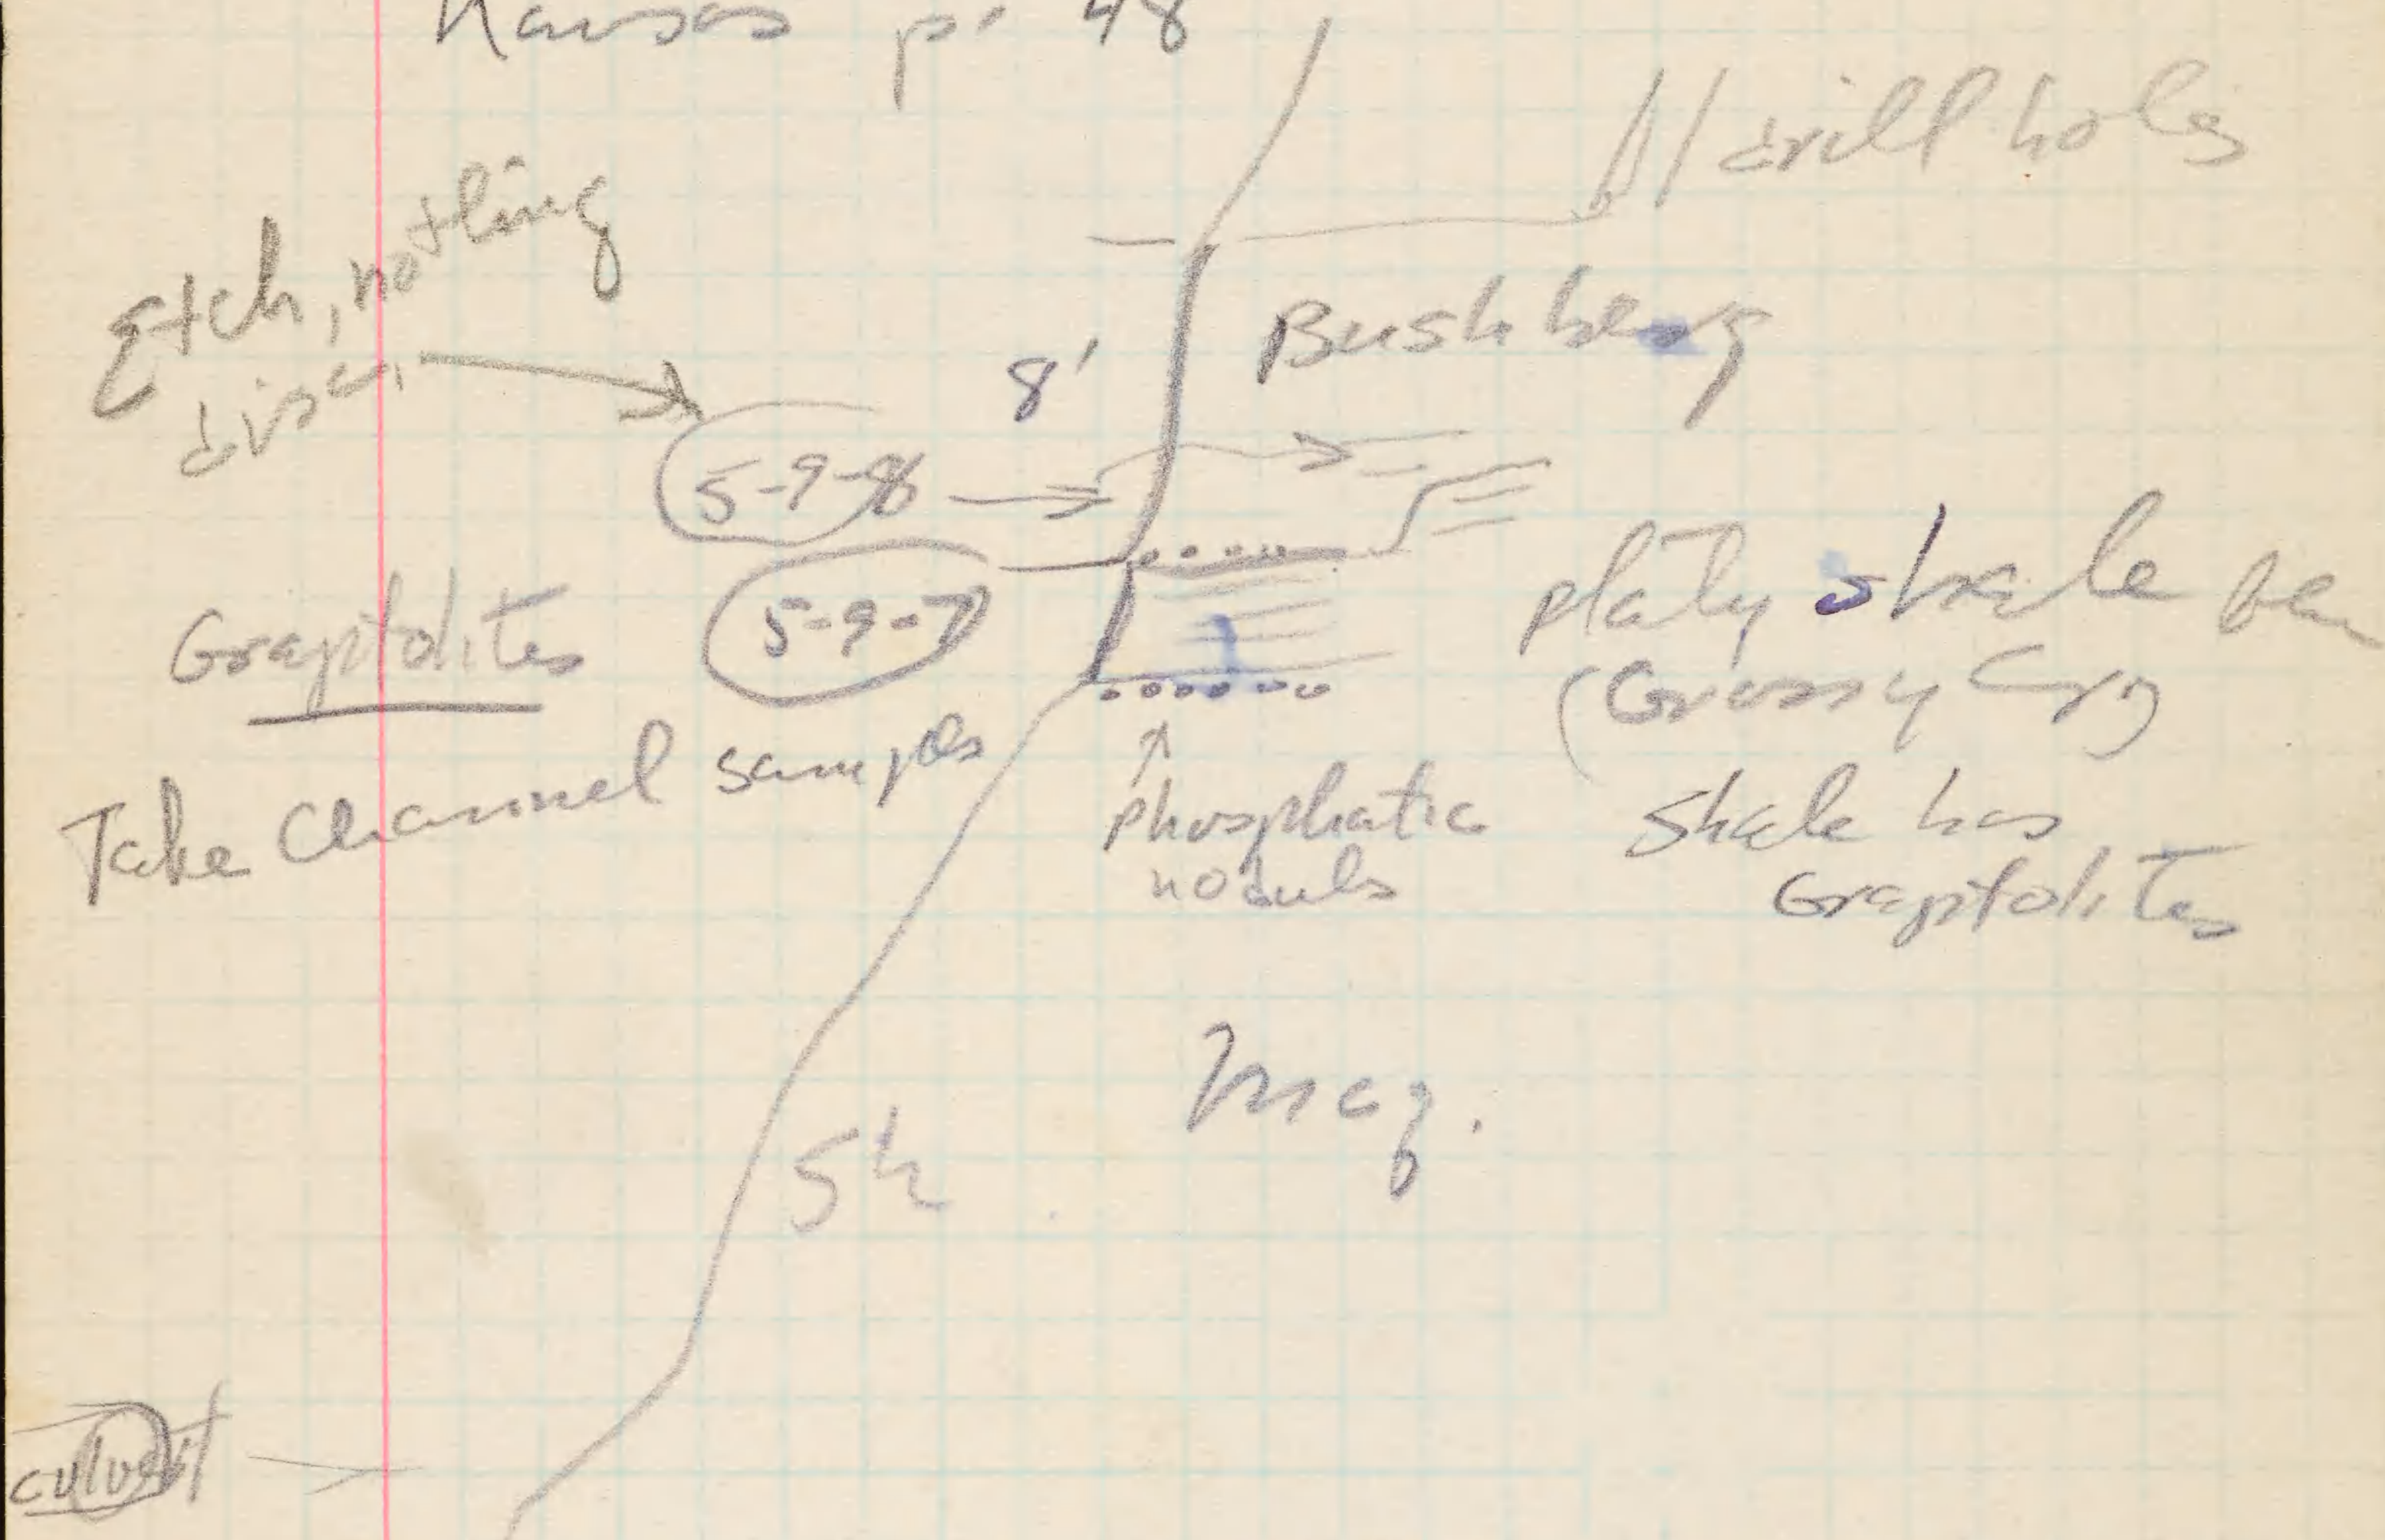 Kansas p. 48
drill holes
Etch, nothing
disc.
8'
Bushberg
5-9-8
5-9-7
Graptolites
platy shale
(Grassy Cr)
Take Channel samples
phosphatic
noduls
Shale has
Graptolites
Maq.
Sh
culvert